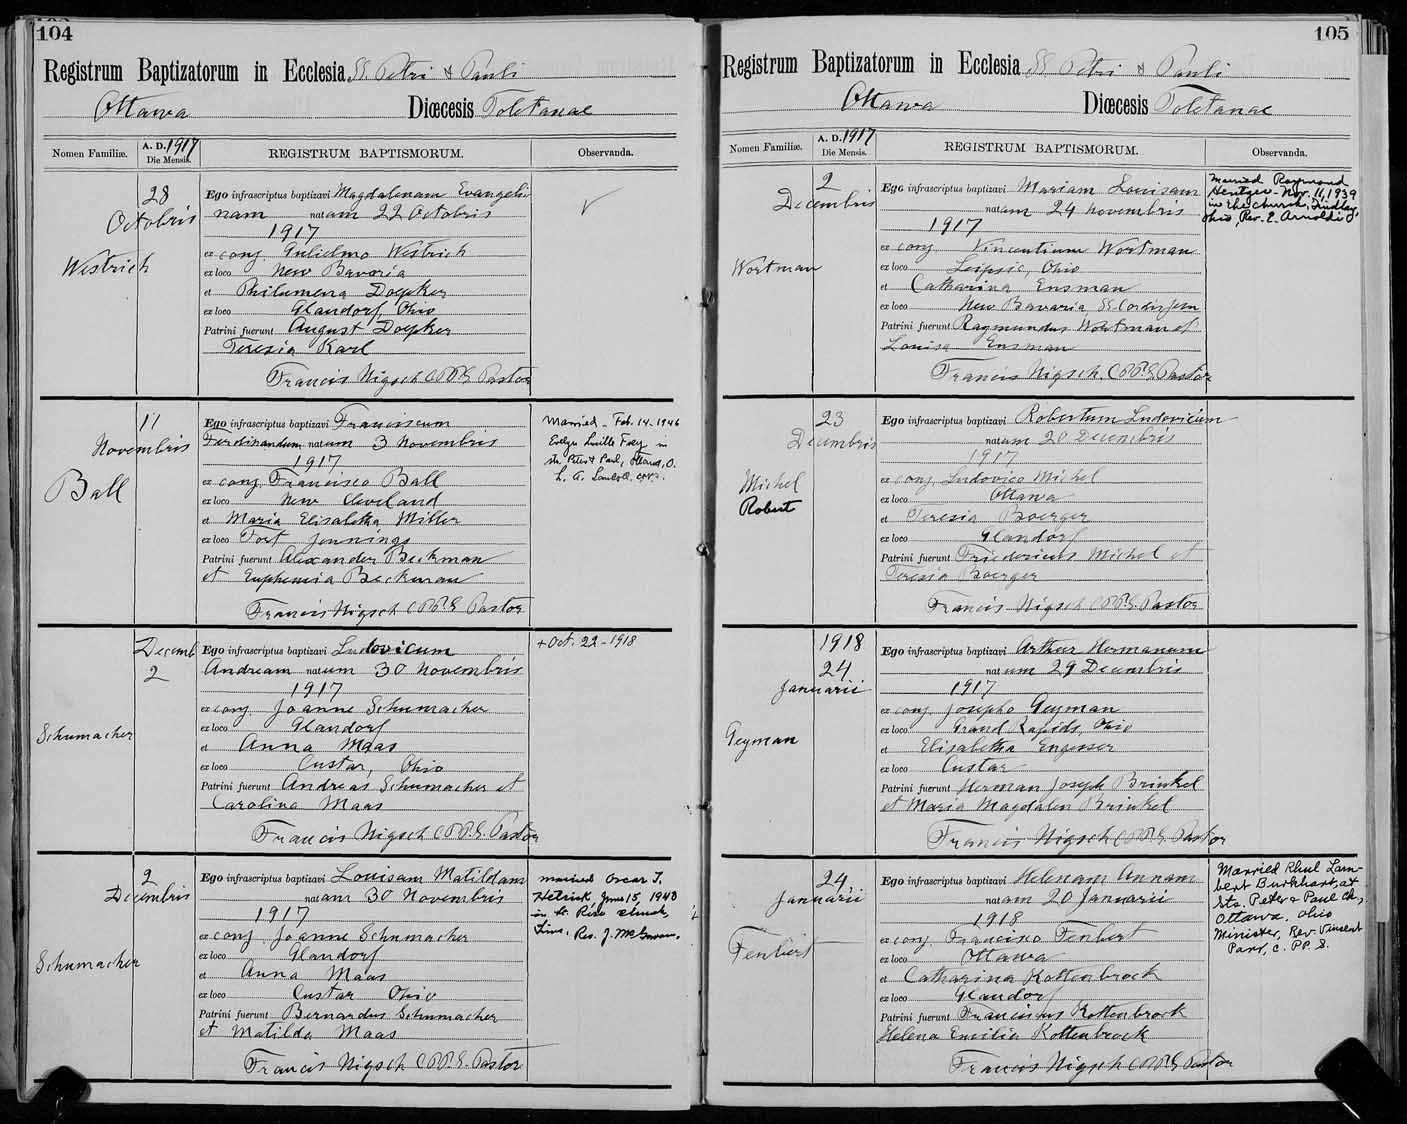 104
Registrum Baptizatorum in Ecclesia SS. Petri & Pauli
Ottawa Diœcesis Toletanae
Nomen Familiæ. A. D. 1917 Die Mensis. REGISTRUM BAPTISMORUM. Observanda.
28
Octobris
Westrich
Ego infrascriptus baptizavi Magdalenam Evangeli-
nam natam 22 Octobris
1917
ex conj. Gulielmo Westrich
ex loco New Bavaria
et Philumena Doepker
ex loco Glandorf, Ohio
Patrini fuerunt August Doepker
Teresia Karl
Francis Nigsch C.PP.S. Pastor
11
Novembris
Ball
Ego infrascriptus baptizavi Franciscum
Ferdinandum natum 3 Novembris
1917
ex conj. Francisco Ball
ex loco New Cleveland
et Maria Elisabetha Miller
ex loco Fort Jennings
Patrini fuerunt Alexander Beckman
et Euphemia Beckman
Francis Nigsch C.PP.S. Pastor
Married - Feb. 14 - 1946
Evelyn Lucille Fey in
Sts. Peter & Paul, Ottawa, O.
L. A.
Decemb
2
Schumacher
Ego infrascriptus baptizavi Ludovicum
Andream natum 30 Novembris
1917
ex conj. Joanne Schumacher
ex loco Glandorf
et Anna Maas
ex loco Custar, Ohio
Patrini fuerunt Andreas Schumacher et
Carolina Maas
Francis Nigsch C.PP.S. Pastor
+ Oct. 22 - 1918
2
Decembris
Schumacher
Ego infrascriptus baptizavi Louisam Matildam
natam 30 Novembris
1917
ex conj. Joanne Schumacher
ex loco Glandorf
et Anna Maas
ex loco Custar Ohio
Patrini fuerunt Bernardus Schumacher
et Matilda Maas
Francis Nigsch C.PP.S. Pastor
married Oscar J.
Helmick, June 15, 1940
in St. Rose church,
Lima, Rev. J. McGowan.
105
Registrum Baptizatorum in Ecclesia SS. Petri & Pauli
Ottawa Diœcesis Toletanae
Nomen Familiæ. A. D. 1917 Die Mensis. REGISTRUM BAPTISMORUM. Observanda.
2
Decembris
Wortman
Ego infrascriptus baptizavi Mariam Louisam
natam 24 Novembris
1917
ex conj. Vincentium Wortman
ex loco Leipsic, Ohio
et Catharina Ensman
ex loco New Bavaria, SS. Cordis Jesu
Patrini fuerunt Raymundus Wortman et
Louisa Ensman
Francis Nigsch. C.PP.S. Pastor
Married Raymond
Hentges - Nov. 16, 1939
in the church, Findlay,
Ohio, Rev. E. Arnoldi
23
Decembris
Michel
Robert
Ego infrascriptus baptizavi Robertum Ludovicum
natum 20 Decembris
1917
ex conj. Ludovico Michel
ex loco Ottawa
et Teresia Boerger
ex loco Glandorf
Patrini fuerunt Friedericus Michel et
Teresia Boerger
Francis Nigsch C.PP.S. Pastor
1918
24
Januarii
Geyman
Ego infrascriptus baptizavi Arthur Hermanum
natum 29 Decembris
1917
ex conj. Josepho Geyman
ex loco Grand Rapids, Ohio
et Elisabetha Engesser
ex loco Custar
Patrini fuerunt Herman Joseph Brinkel
et Maria Magdalen Brinkel
Francis Nigsch C.PP.S. Pastor
24
Januarii
Fenbert
Ego infrascriptus baptizavi Helenam Annam
natam 20 Januarii
1918
ex conj. Francisco Fenbert
ex loco Ottawa
et Catharina Kottenbrock
ex loco Glandorf
Patrini fuerunt Franciscus Kottenbrock
Helena Emilia Kottenbrock
Francis Nigsch C.PP.S Pastor
Married Rhul Lam-
bert Burkhart, at
Sts. Peter & Paul Ch,
Ottawa, Ohio
Minister, Rev. Vincent
Parr, C. PP. S.